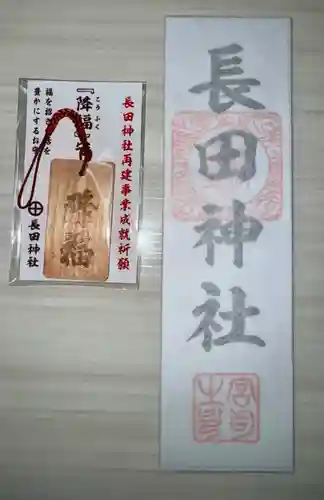 長田神社
長田神社再建事業成就祈願
こうふく
『降福』
福を招き
豊かにするお
降福
長田神社